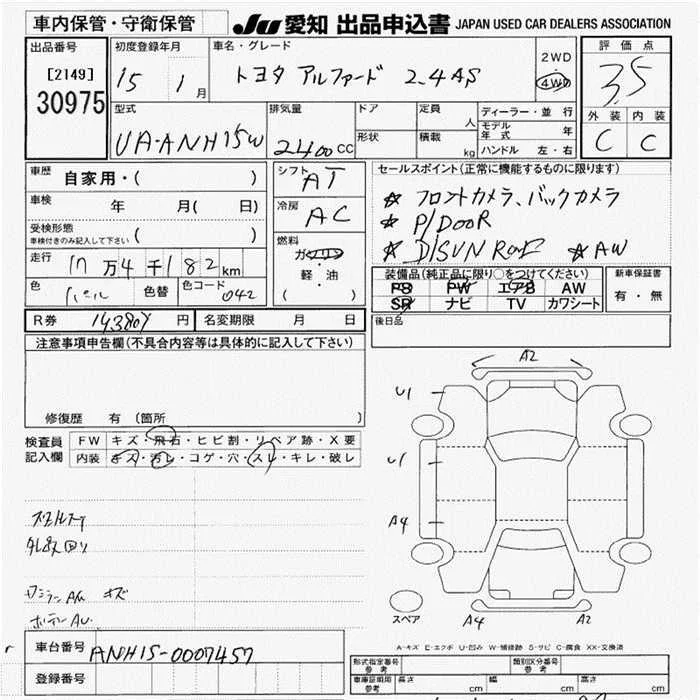 車内保管・守衛保管
JU 愛知 出品申込書 JAPAN USED CAR DEALERS ASSOCIATION
出品番号
[2149]
30975
初度登録年月
15 1月
車名・グレード
トヨタ アルファード 2.4AS
2WD
4WD
評価点
3.5
外装 内装
C C
型式
UA-ANH15W
排気量
2400CC
ドア
形状
定員 人
積載 kg
ディーラー・並行
モデル年式 年
ハンドル 左・右
車歴 自家用・( )
車検 年 月( 日)
受検形態
車検付きのみ記入して下さい ( )
走行 10万4千182km
色 パール 色替
色コード 042
シフト AT
冷房 AC
燃料
ガソリン
軽・油
( )
セールスポイント(正常に機能するものに限ります)
☆ フロントカメラ、バックカメラ
☆ P/DOOR
☆ D/SUN ROOF ☆ AW
装備品(純正品に限り○をつけてください)
PS PW エアB AW
SR ナビ TV カワシート
新車保証書
有・無
後日品
R券 円
名変期限 月 日
注意事項申告欄(不具合内容等は具体的に記入して下さい)
修復歴 有 (箇所 )
検査員
記入欄
FW キズ・飛石・ヒビ割・リペア跡・X要
内装 キズ・汚レ・コゲ・穴・スレ・キレ・破レ
A2
U1
U1
A4
スペア
A4 A2
A-キズ E-エクボ U-凹み W-補修跡 S-サビ C-腐食 XX-交換済
車台番号 ANH15-0007457
登録番号
形式指定番号
参考
類別区分番号
参考
車庫証明用
参考
長さ cm
幅 cm
高さ cm